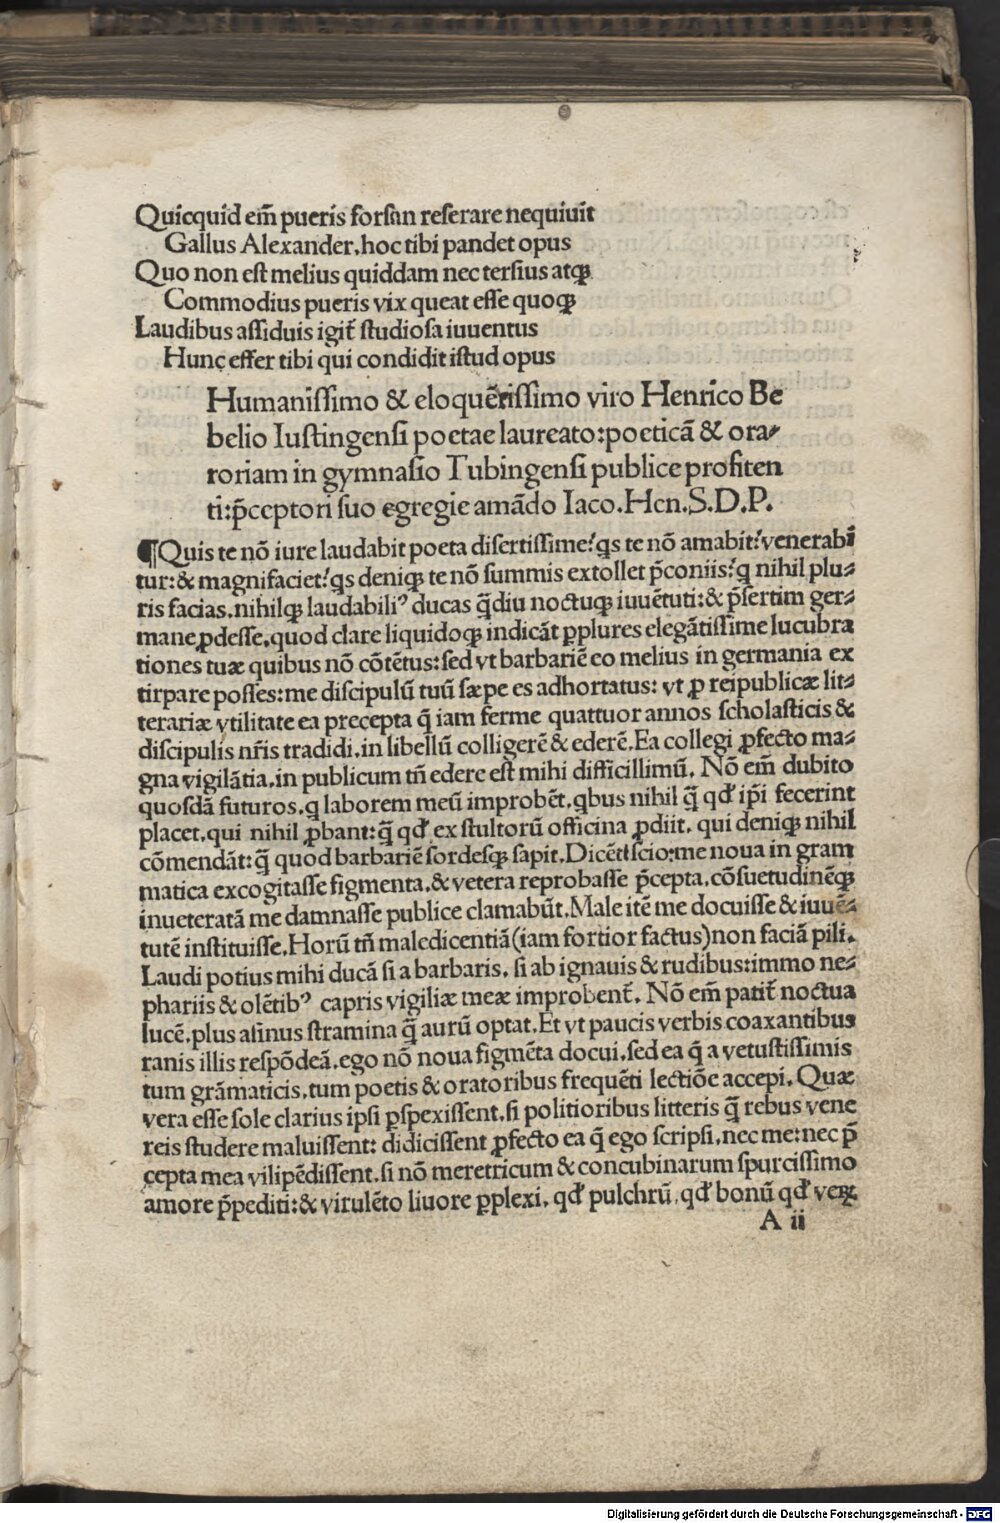 Quicquid em̃ pueris forsan reserare nequiuit
Gallus Alexander.hoc tibi pandet opus
Quo non est melius quiddam nec tersius atqꝫ
Commodius pueris vix queat esse quoqꝫ
Laudibus assiduis igit̃ studiosa iuuentus
Hunc effer tibi qui condidit istud opus
Humanissimo & eloquẽtissimo viro Henrico Be
belio Iustingensi poetae laureato:poeticã & ora⸗
toriam in gymnasio Tubingensi publice profiten
ti:p̃ceptori suo egregie amãdo Iaco.Hen.S.D.P.
¶Quis te nõ iure laudabit poeta disertissime?qͥs te nõ amabit?venerabi
tur:& magnifaciet?qͥs deniqꝫ te nõ summis extollet p̃coniis?q nihil plu⸗
ris facias.nihilqꝫ laudabiliꝰ ducas q̃diu noctuqꝫ iuuẽtuti:& p̃sertim ger⸗
mane ꝓdesse.quod clare liquidoqꝫ indicãt ꝑplures elegãtissime lucubra
tiones tuæ quibus nõ cõtẽtus:sed vt barbariẽ eo melius in germania ex
tirpare posses:me discipulũ tuũ sæpe es adhortatus: vt ꝓ reipublicæ lit⸗
terariæ vtilitate ea precepta q̃ iam ferme quattuor annos scholasticis &
discipulis nr̃is tradidi.in libellũ colligerẽ & ederẽ.Ea collegi ꝓfecto ma⸗
gna vigilãtia.in publicum tñ edere est mihi difficillimũ. Nõ em̃ dubito
quosdã futuros.q laborem meũ improbẽt.qͥbus nihil q̃ꝫ qđ ip̃i fecerint
placet.qui nihil ꝓbant:q̃ꝫ qđ ex stultorũ officina ꝓdiit. qui deniqꝫ nihil
cõmendãt:q̃ꝫ quod barbariẽ sordesqꝫ sapit.Dicẽt scio:me noua in gram
matica excogitasse figmenta.& vetera reprobasse p̃cepta.cõsuetudinẽqꝫ
inueteratã me damnasse publice clamabũt.Male itẽ me docuisse & iuuẽ⸗
tutẽ instituisse.Horũ tñ maledicentiã(iam fortior factus)non faciã pili.
Laudi potius mihi ducã si a barbaris. si ab ignauis & rudibus:immo ne⸗
phariis & olẽtibꝰ capris vigiliæ meæ improbent̃. Nõ em̃ patit̃ noctua
lucẽ.plus asinus stramina q̃ꝫ aurũ optat.Et vt paucis verbis coaxantibus
ranis illis respõdeã.ego nõ noua figmẽta docui.sed ea q̃ a vetustissimis
tum grãmaticis.tum poetis & oratoribus frequẽti lectiõe accepi. Quæ
vera esse sole clarius ipsi ꝑspexissent.si politioribus litteris q̃ꝫ rebus vene
reis studere maluissent: didicissent ꝓfecto ea q̃ ego scripsi.nec me:nec p̃
cepta mea vilipẽdissent.si nõ meretricum & concubinarum spurcissimo
amore p̃pediti:& virulẽto liuore ꝑplexi. qđ pulchrũ.qđ bonũ qđ veꝝ
A ii
Digitalisierung gefördert durch die Deutsche Forschungsgemeinschaft - DFG